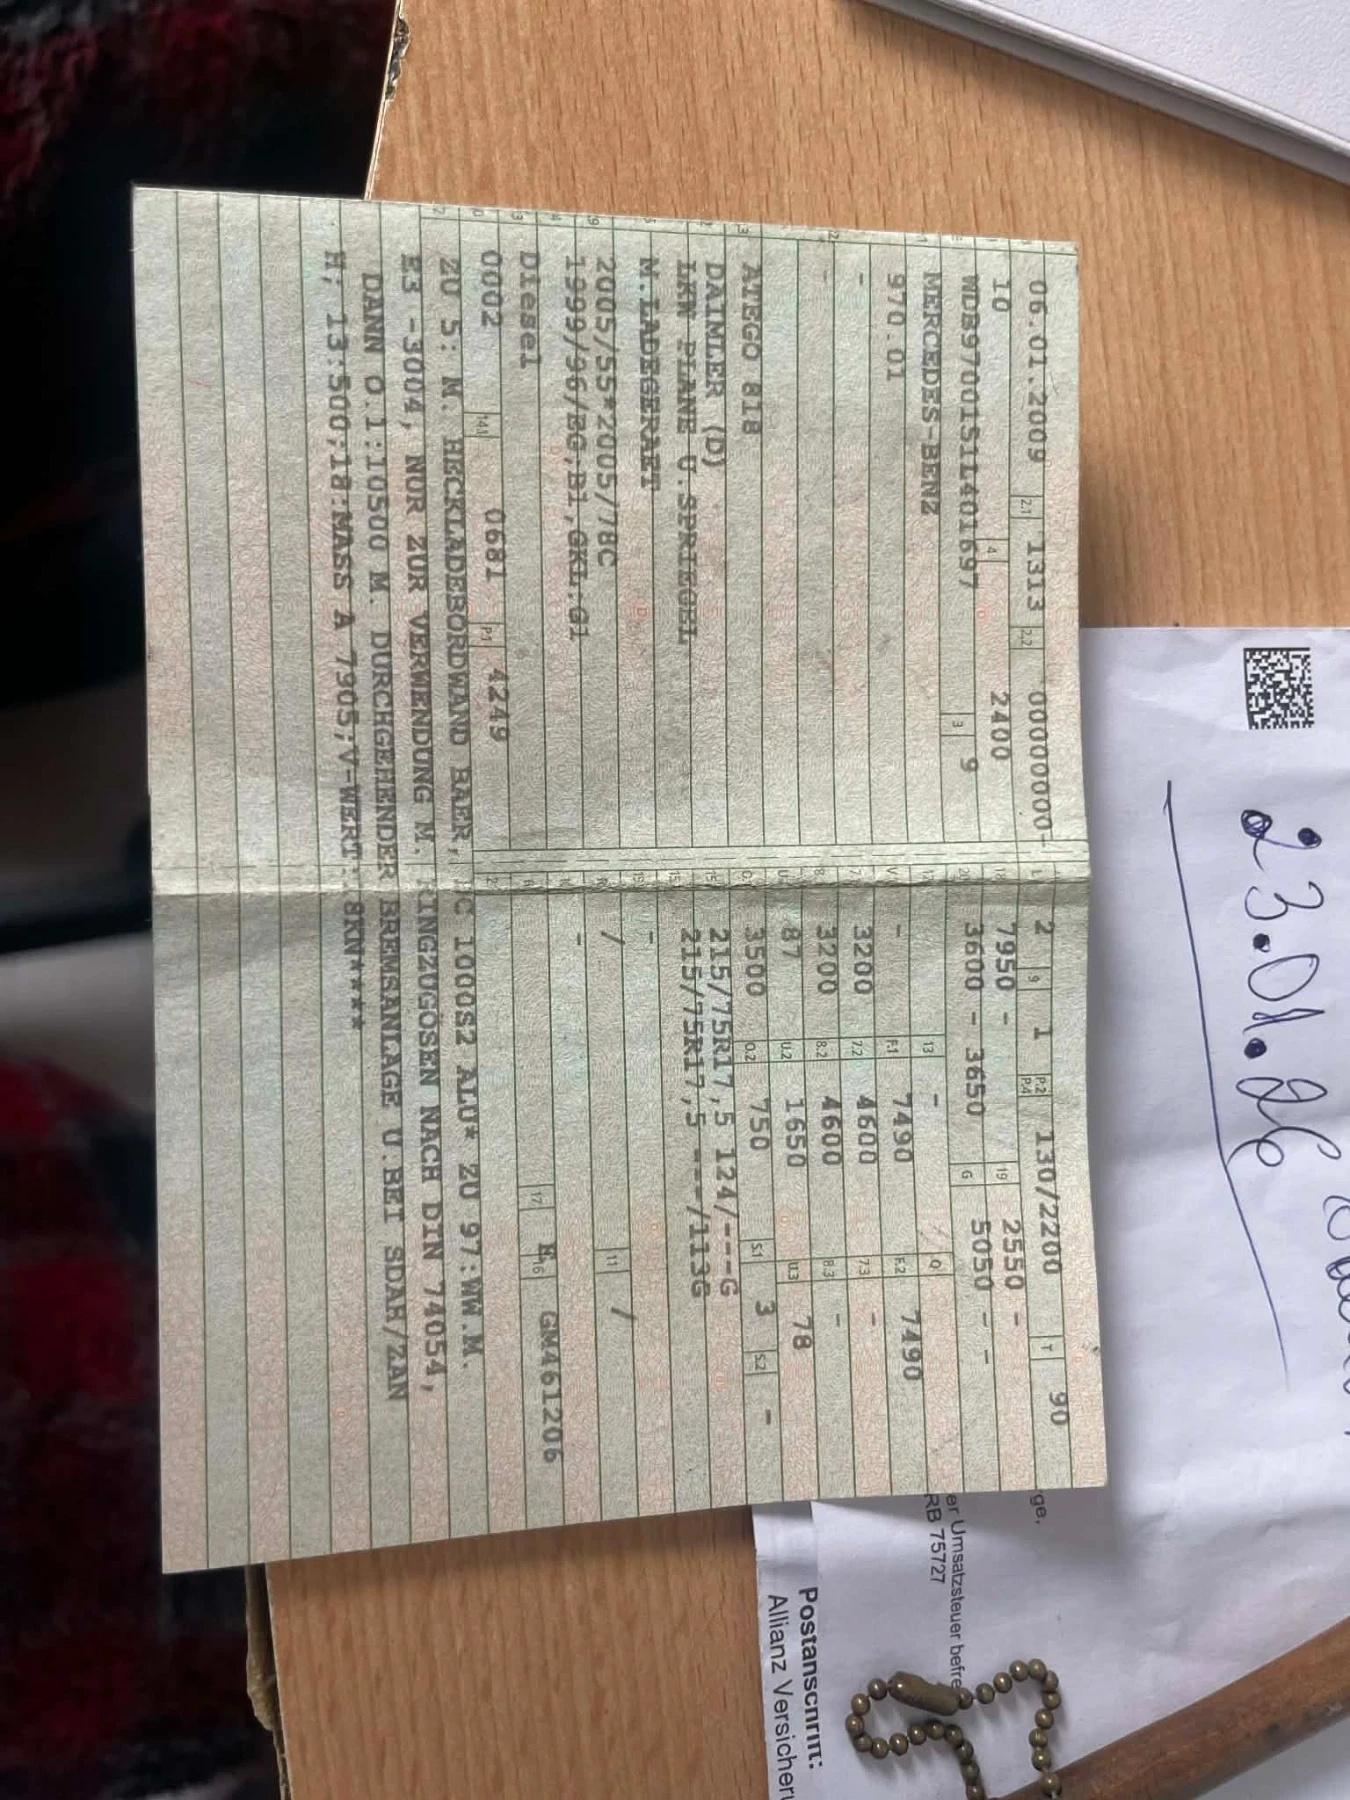 06.01.2009 2.1 1313 2.2 00000000-
10 4 2400
WDB9700151L401697 3 9
MERCEDES-BENZ
970.01
-
-
ATEGO 818
DAIMLER (D)
LKW PLANE U.SPRIEGEL
M.LADEGERAET
2005/55*2005/78C
1999/96/EG,B1,GKL:G1
Diesel
0002 14.1 0681 P.1 4249
2 9 1 P.2 P.4 130/2200 T 90
7950 - 19 2550 -
3600 - 3650 G 5050 - -
13 - Q
- F.1 7490 F.2 7490
3200 7.2 4600 7.3 -
3200 8.2 4600 8.3 -
87 U.2 1650 U.3 78
3500 O.2 750 S.1 3 S.2 -
215/75R17,5 124/---G
215/75R17,5 ---/113G
-
/ 11 /
-
17 E 16 GM461206
ZU 5: M. HECKLADEBORDWAND BAER, BC 1000S2 ALU* ZU 97:WW.M.
E3 -3004, NUR ZUR VERWENDUNG M. RINGZUGÖSEN NACH DIN 74054,
DANN O.1:10500 M. DURCHGEHENDER BREMSANLAGE U.BEI SDAH/ZAN
H; 13:500;18:MASS A 7905;V-WERT:.8KN****
23.01.26
ge,
er Umsatzsteuer befre
RB 75727
Postanschrift:
Allianz Versicheru